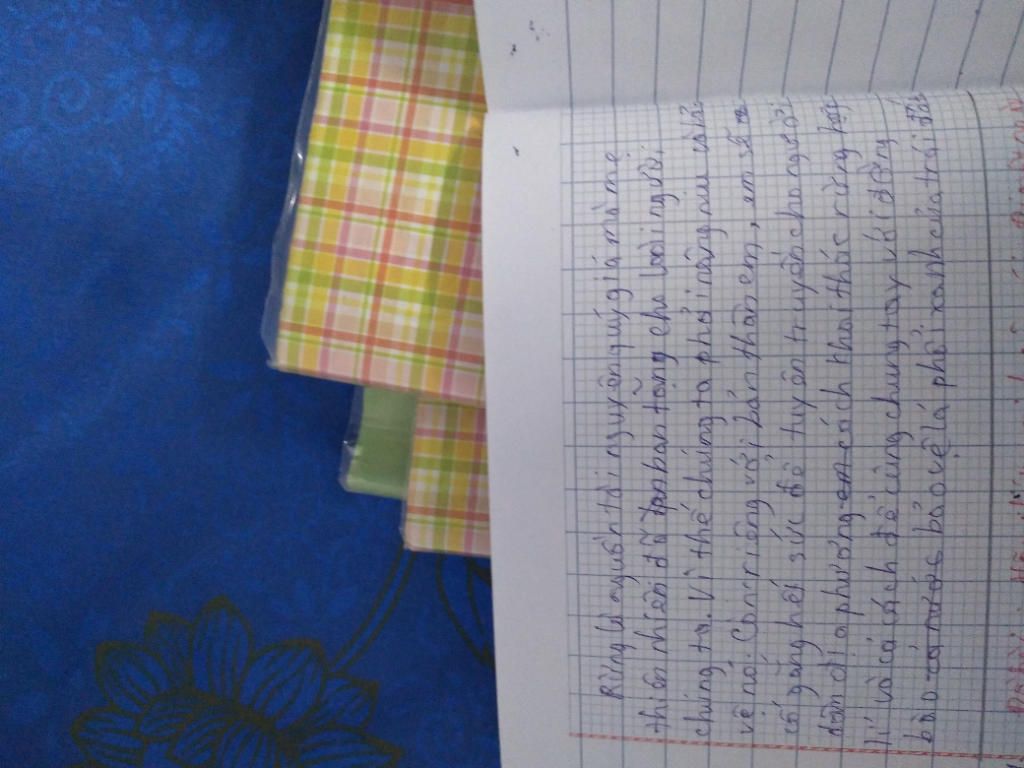 Rừng là nguồn tài nguyên quý giá mà mẹ
thiên nhiên đã ban tặng cho loài người
chúng ta. Vì thế chúng ta phải nâng niu và bảo
vệ nó. Còn riêng với bản thân em, em sẽ
cố gắng hết sức để tuyên truyền cho người
dân địa phương em cách thai thác rừng hợp
lí và các cách để cùng chung tay với đồng
bào cả nước bảo vệ lá phổi xanh của trái đất